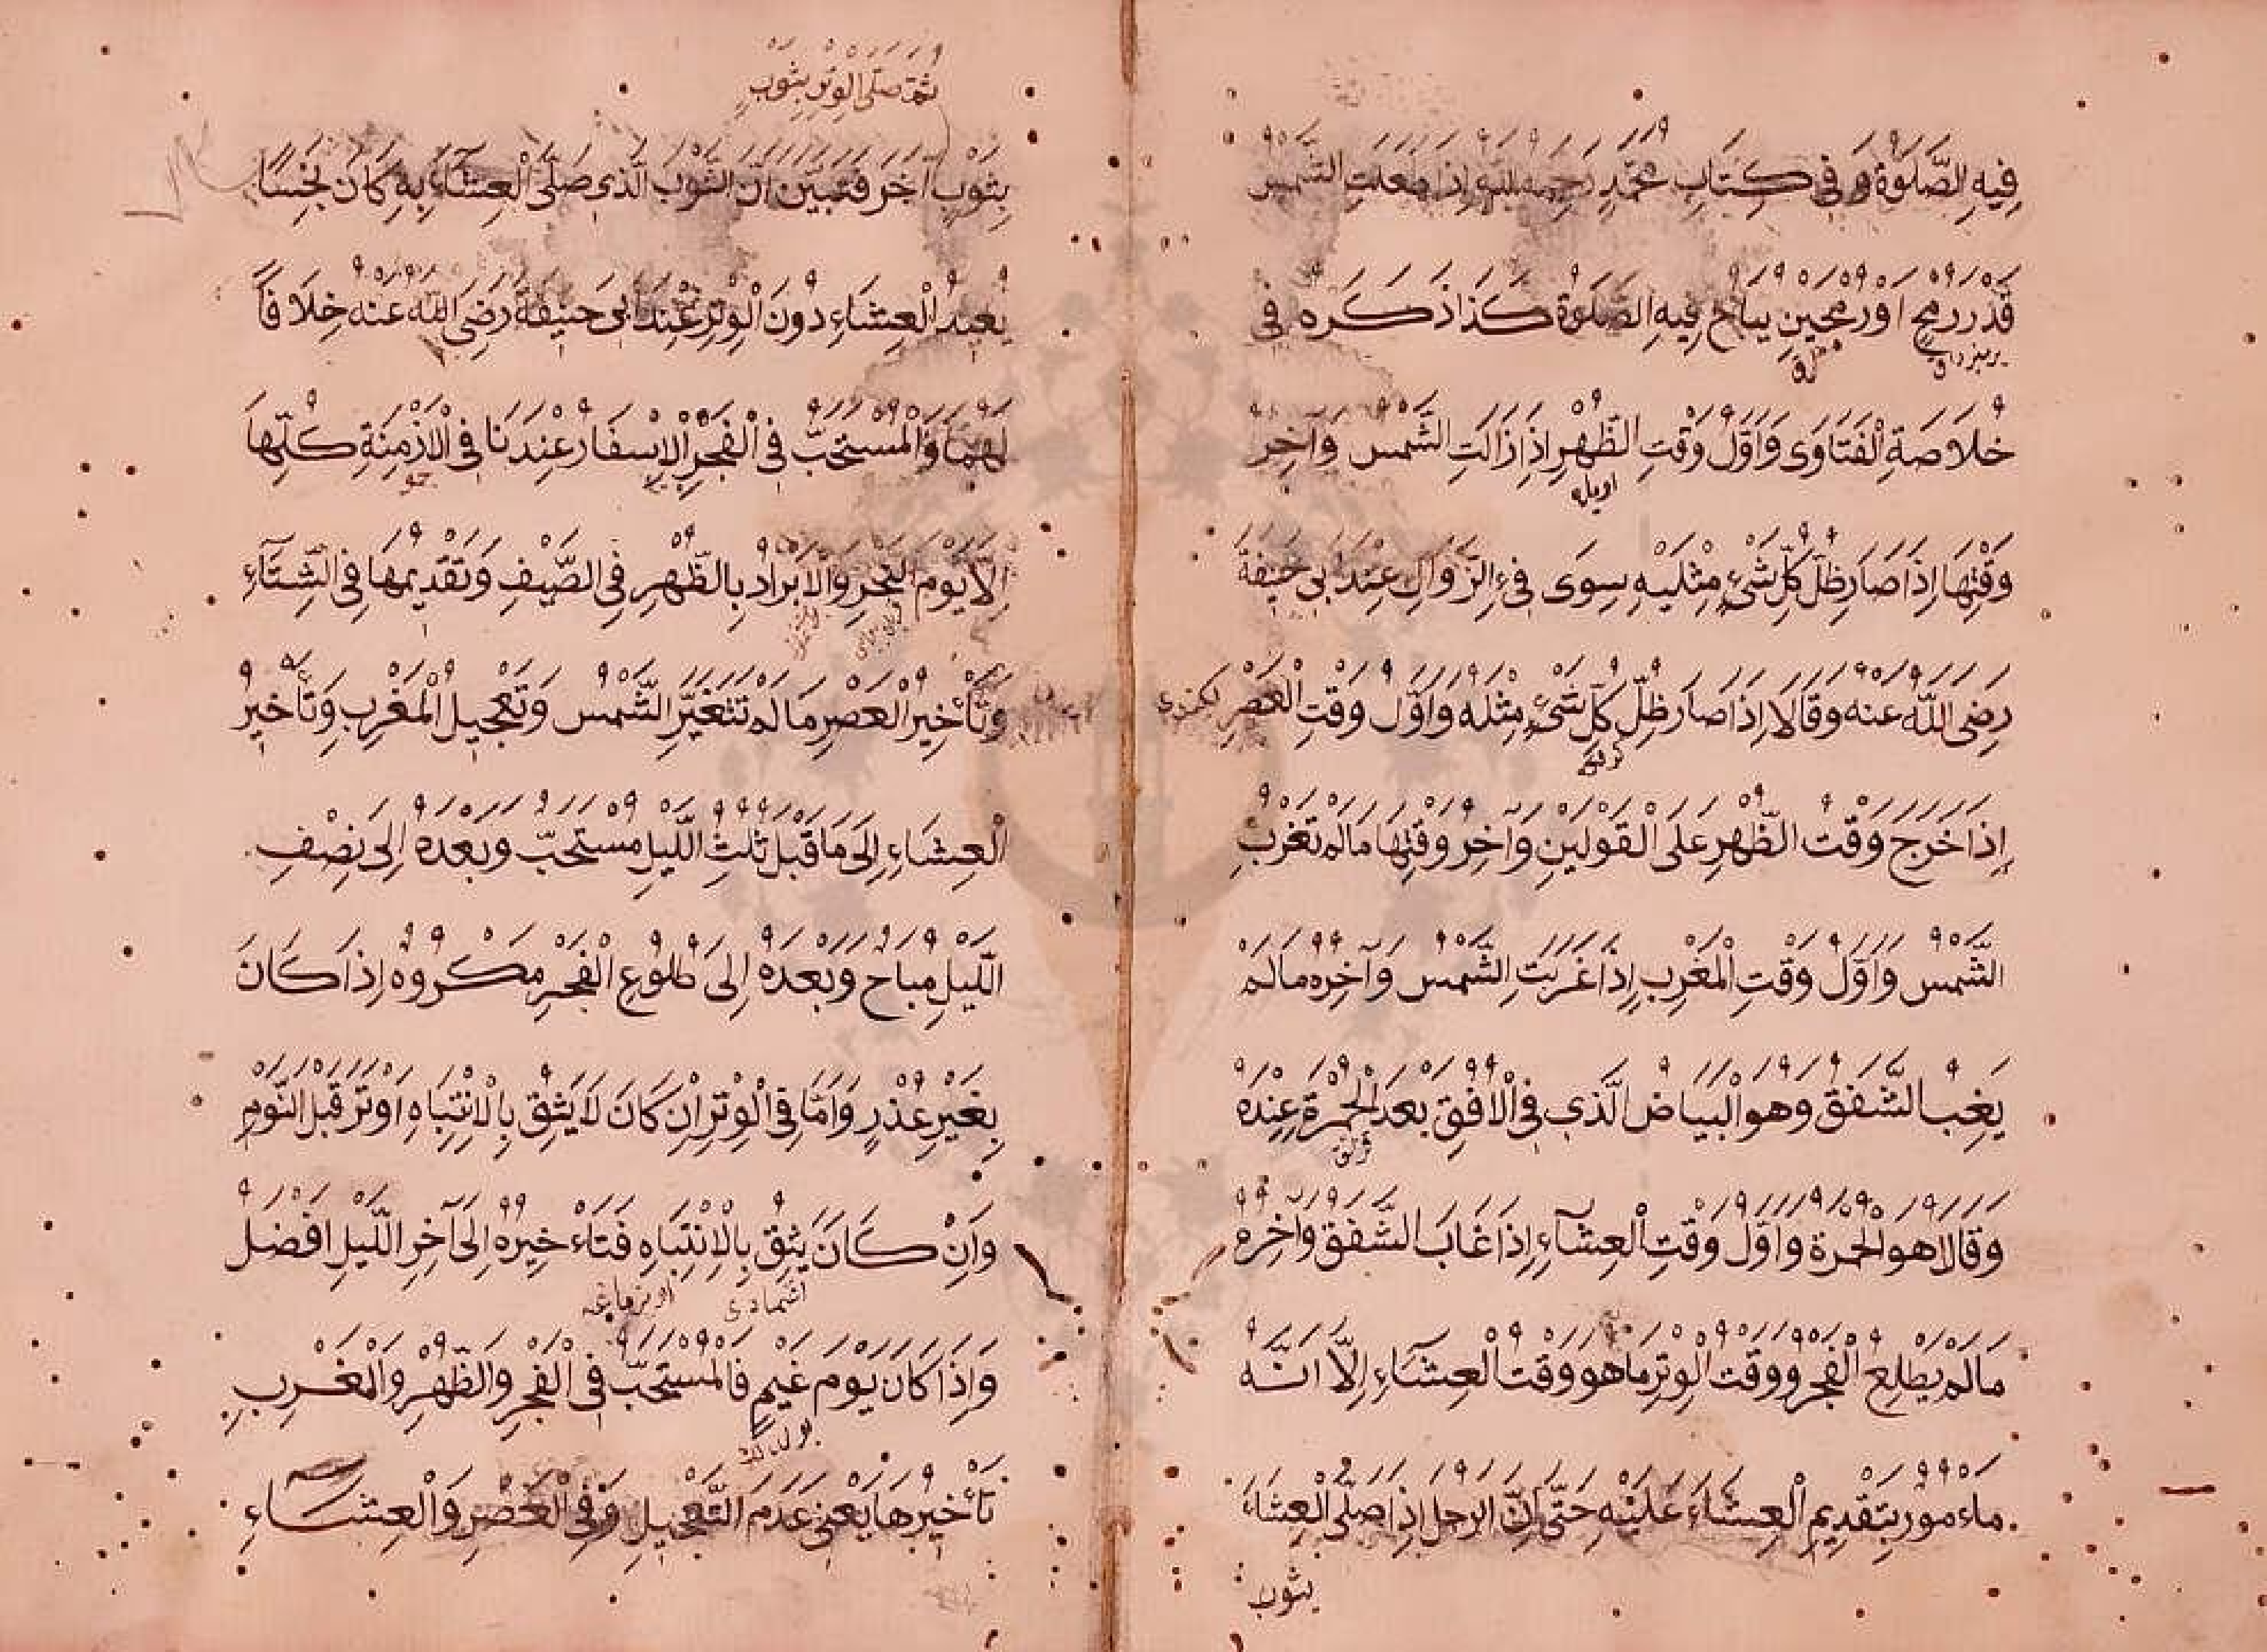 فِيهِ الصَّلَوةُ وَ فِي كِتَابِ مُحَمَّدٍ رَحِمَهُ اللّٰهُ إِذَا طَلَعَتِ الشَّمْسُ
قَدْرَ رُمْحٍ اَوْ رُمْحَيْنِ يُبَاحُ فِيهِ الصَّلَوةُ كَذَا ذَكَرَهُ فِي
خُلَاصَةِ الْفَتَاوَى وَاَوَّلُ وَقْتِ الظُّهْرِ اِذَا زَالَتِ الشَّمْسُ وَآخِرُ
اويله
وَقْتِهَا إِذَا صَارَ ظِلُّ كُلِّ شَيْءٍ مِثْلَيْهِ سِوَى فَيْءِ الزَّوَالِ عِنْدَ بِي حَنِيفَةَ
رَضِىَ اللّٰهُ عَنْهُ وَقَالَا إِذَا صَارَ ظِلُّ كُلِّ شَيْءٍ مِثْلَهُ وَاَوَّلُ وَقْتِ الْعَصْرِ
إِذَا خَرَجَ وَقْتُ الظُّهْرِ عَلَى الْقَوْلَيْنِ وَآخِرُ وَقْتِهَا مَالَمْ تَغْرُبِ
الشَّمْسُ وَاَوَّلُ وَقْتِ الْمَغْرِبِ إِذَا غَرَبَتِ الشَّمْسُ وَآخِرُهُ مَالَمْ
يَغِبِ الشَّفَقُ وَهُوَ الْبَيَاضُ الَّذِي فِي الْاُفُقِ بَعْدَ الْحُمْرَةِ عِنْدَهُ
وَقَالَا هُوَ الْحُمْرَةُ وَاَوَّلُ وَقْتِ الْعِشَآءِ إِذَا غَابَ الشَّفَقُ وَآخِرُهُ
مَالَمْ يَطْلِعُ الْفَجْرُ وَوَقْتُ الْوِتْرِ مَا هُوَ وَقْتُ الْعِشَآءِ إِلَّا اَنَّهُ
مَاءمُورٌ بِتَقْدِيمِ الْعِشَآءِ عَلَيْهِ حَتَّى اِنَّ الرَّجُلَ إِذَا صَلَّى الْعِشَاءَ
بثوب
ثُمَّ صَلَّى الْوِتْرَ بِثَوْبٍ
بِثَوْبٍ آخَرَ فَتَبَيَّنَ اَنَّ الثَّوْبَ الَّذِي صَلَّى الْعِشَآءَ بِهِ كَانَ نَجِسًا
يُعِيدُ الْعِشَاءَ دُونَ الْوِتْرِ عِنْدَ اَبِي حَنِيفَةَ رَضِىَ اللّٰهُ عَنْهُ خِلَافًا
لَهُمَا وَالْمُسْتَحَبُّ فِي الْفَجْرِ الْاِسْفَارُ عِنْدَنَا فِي الْاَزْمِنَةِ كُلِّهَا
اِلَّا يَوْمَ النَّحْرِ وَالْاِبْرَادُ بِالظُّهْرِ فِي الصَّيْفِ وَتَقْدِيمُهَا فِي الشِّتَآءِ
وَتَأْخِيرُ الْعَصْرِ مَا لَمْ تَتَغَيَّرِ الشَّمْسُ وَتَعْجِيلُ الْمَغْرِبِ وَتَأْخِيرُ
الْعِشَاءِ إِلَى مَا قَبْلَ ثُلُثِ اللَّيْلِ مُسْتَحَبٌّ وَبَعْدَهُ اِلَى نِصْفِ
اللَّيْلِ مُبَاحٌ وَبَعْدَهُ اِلَى طُلُوعِ الْفَجْرِ مَكْرُوهٌ اِذَا كَانَ
بِغَيْرِ عُذْرٍ وَاَمَّا فِي الْوِتْرِ اِنْ كَانَ لَا يَثِقُ بِالْاِنْتِبَاهِ اَوْتَرَ قَبْلَ النَّوْمِ
وَاِنْ كَانَ يَثِقُ بِالْاِنْتِبَاهِ فَتَاءْخِيرُهُ اِلَى آخِرِ اللَّيْلِ اَفْضَلُ
وَاِذَا كَانَ يَوْمَ غَيْمٍ فَالْمُسْتَحَبُّ فِي الْفَجْرِ وَالظُّهْرِ وَالْمَغْرِبِ
تَأْخِيرُهَا يَعْنِي عَدَمَ التَّعْجِيلِ وَفِي الْعَصْرِ وَالْعِشَآءِ